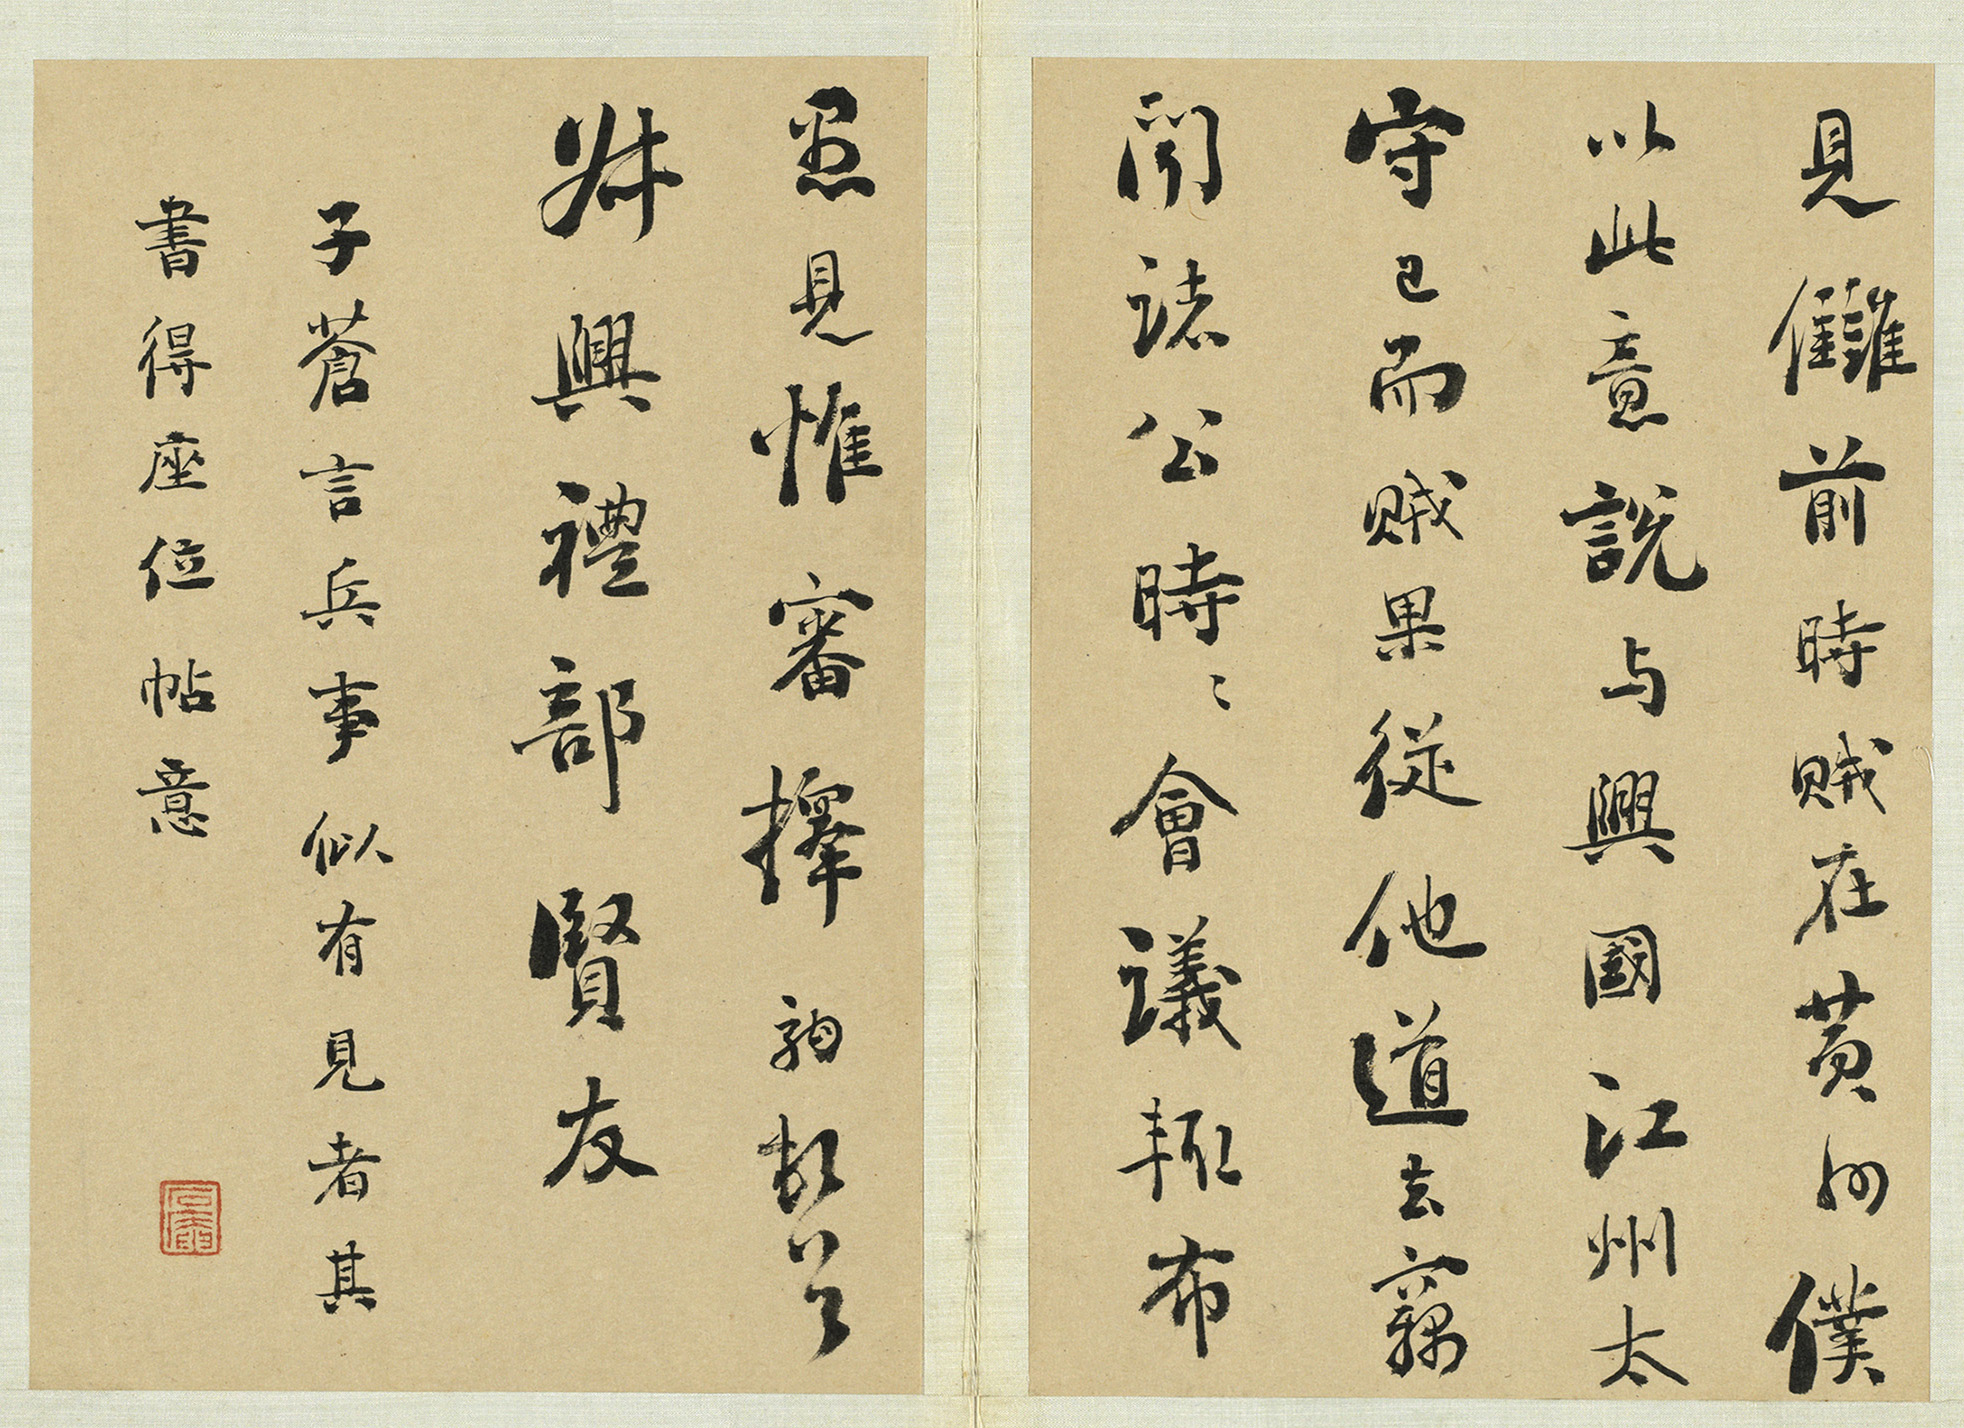 見讎前時賊在黄州僕
以此意説与興國江州太
守已而賊果從他道去竊
聞諸公時〻會議輒布
愚見惟審擇
叔興禮部賢友
子蒼言兵事似有見者其
書得座位帖意